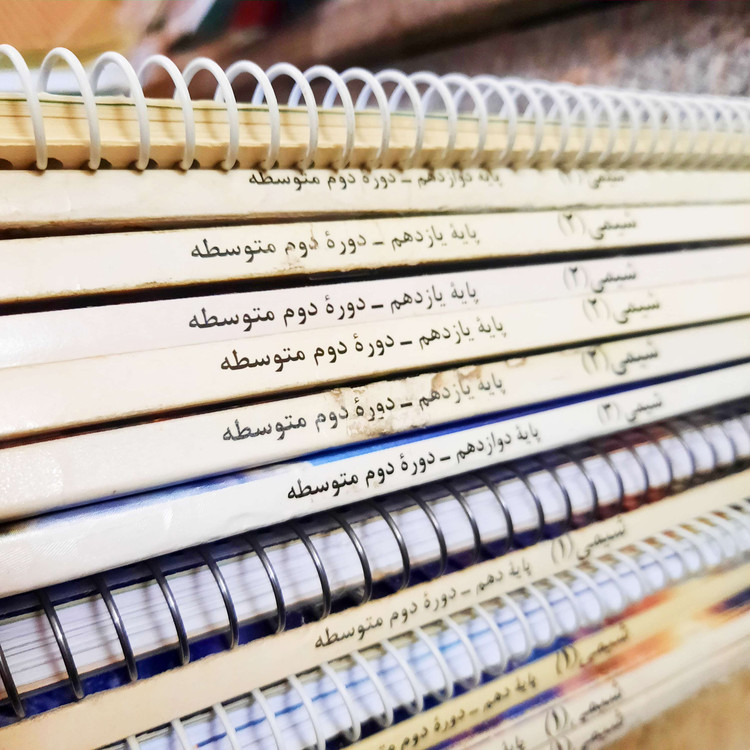 شیمی (۳) پایهٔ دوازدهم ـ دورهٔ دوم متوسطه
شیمی (۲) پایهٔ یازدهم ـ دورهٔ دوم متوسطه
شیمی (۲) پایهٔ یازدهم ـ دورهٔ دوم متوسطه
شیمی (۲) پایهٔ یازدهم ـ دورهٔ دوم متوسطه
شیمی (۲) پایهٔ یازدهم ـ دورهٔ دوم متوسطه
شیمی (۳) پایهٔ دوازدهم ـ دورهٔ دوم متوسطه
شیمی (۱) پایهٔ دهم ـ دورهٔ دوم متوسطه
شیمی (۱) پایهٔ دهم ـ دورهٔ دوم متوسطه
شیمی (۱) پایهٔ
شیمی (۱)